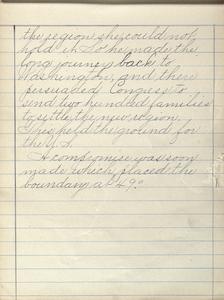 the region she could not
hold it. So he made the
long journey back to
Washington, and there
persuaded Congress to
send two hundred families
to settle the new region.
They held the ground for
the U.S.
A compromise was soon
made which placed the
boundary at 49°